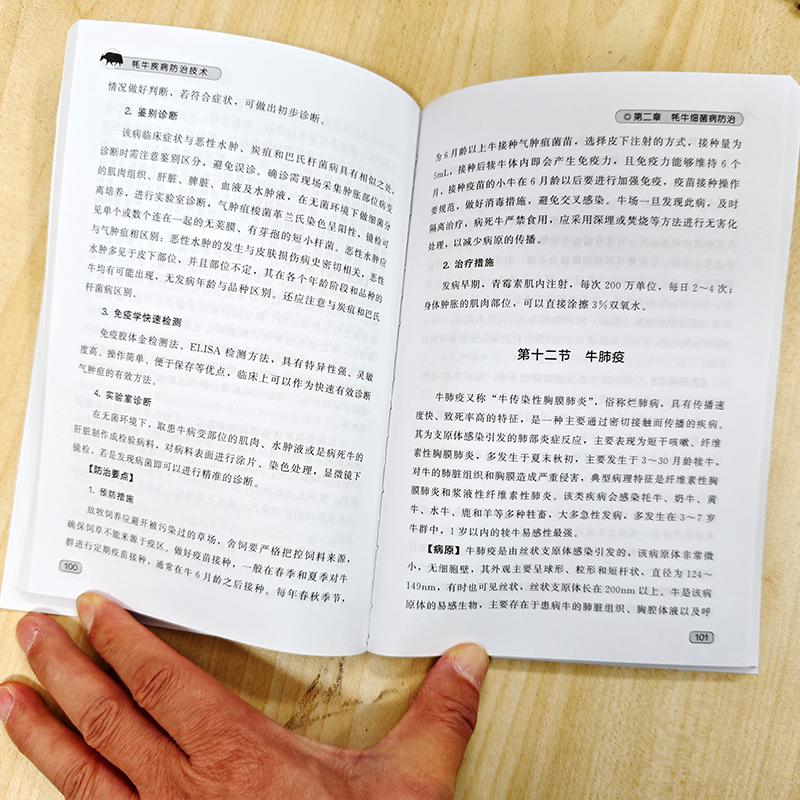 牦牛疾病防治技术
情况做好判断，若符合症状，可做出初步诊断。
2. 鉴别诊断
该病临床症状与恶性水肿、炭疽和巴氏杆菌病具有相似之处，
诊断时需注意鉴别区分，避免误诊。确诊需现场采集肿胀部位病变
的肌肉组织、肝脏、脾脏、血液及水肿液，在无菌环境下做细菌分
离培养，进行实验室诊断，气肿疽梭菌革兰氏染色呈阳性，镜检可
见单个或数个连在一起的无荚膜、有芽孢的短小杆菌。恶性水肿应
与气肿疽相区别：恶性水肿的发生与皮肤损伤病史密切相关，恶性
水肿多见于皮下部位，并且部位不定，其在各个年龄阶段和品种的
牛均有可能出现，无发病年龄与品种区别。还应注意与炭疽和巴氏
杆菌病区别。
3. 免疫学快速检测
免疫胶体金检测法、ELISA 检测方法，具有特异性强、灵敏
度高、操作简单、便于保存等优点，临床上可以作为快速有效诊断
气肿疽的有效方法。
4. 实验室诊断
在无菌环境下，取患牛病变部位的肌肉、水肿液或是病死牛的
肝脏制作成检验病料，对病料表面进行涂片、染色处理，显微镜下
镜检，若是发现病菌即可以进行精准的诊断。
【防治要点】
1. 预防措施
放牧饲养应避开被污染过的草场，舍饲要严格把控饲料来源，
确保饲草不能来源于疫区。做好疫苗接种，一般在春季和夏季对牛
群进行定期疫苗接种，通常在牛 6 月龄之后接种。每年春秋季节，
100
第二章 牦牛细菌病防治
为 6 月龄以上牛接种气肿疽菌苗，选择皮下注射的方式，接种量为
5mL，接种后牦牛体内即会产生免疫力，且免疫力能够维持 6 个
月，接种疫苗的小牛在 6 月龄以后要进行加强免疫，疫苗接种操作
要规范，做好消毒措施，避免交叉感染。牛场一旦发现此病，及时
隔离治疗，病死牛严禁食用，应采用深埋或焚烧等方法进行无害化
处理，以减少病原的传播。
2. 治疗措施
发病早期，青霉素肌内注射，每次 200 万单位，每日 2～4 次；
身体肿胀的肌肉部位，可以直接涂擦 3%双氧水。
第十二节 牛肺疫
牛肺疫又称“牛传染性胸膜肺炎”，俗称烂肺病，具有传播速
度快、致死率高的特征，是一种主要通过密切接触而传播的疾病。
其为支原体感染引发的肺部炎症反应，主要表现为短干咳嗽、纤维
素性胸膜肺炎，多发生于夏末秋初，主要发生于 3～30 月龄犊牛，
对牛的肺脏组织和胸膜造成严重侵害，典型病理特征是纤维素性胸
膜肺炎和浆液性纤维素性肺炎。该类疾病会感染牦牛、奶牛、黄
牛、水牛、鹿和羊等多种牲畜，大多急性发病，多发生在 3～7 岁
牛群中，1 岁以内的犊牛易感性最强。
【病原】牛肺疫是由丝状支原体感染引发的，该病原体非常微
小，无细胞壁，其外观主要呈球形、粒形和短杆状，直径为 124～
149nm，有时也可见丝状，丝状支原体长在 200nm 以上。牛是该病
原体的易感生物，主要存在于患病牛的肺脏组织、胸腔体液以及呼
101